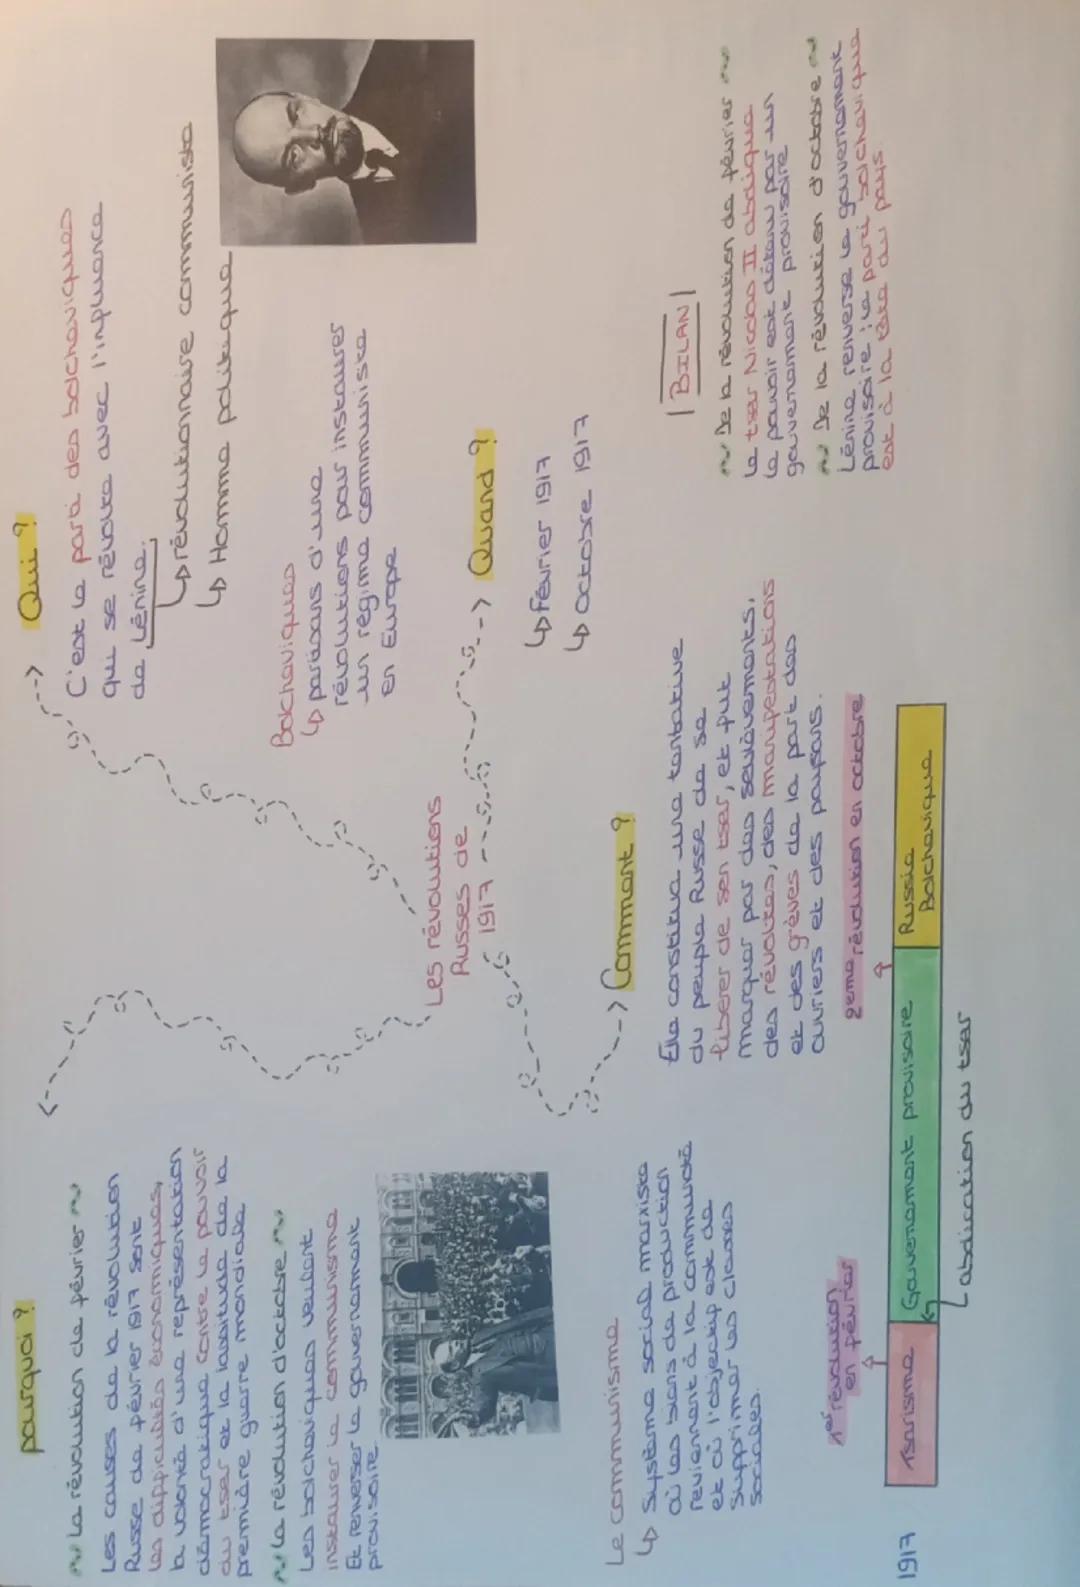 pourquoi ?
La révolution de février
Les causes de la révolution
Russe de février 1917 sont
les difficultés économiques,
la volonté d'une représentation
démocratique contre le pouvoir
du tsar et la lassitude de la
première guerre mondiale
La révolution d'octobre
Les bolchéviques veulent
instaurer le communisme
Et renverser le gouvernement
provisoire.
Le communisme
↳ Système social marxiste
où les biens de production
reviennent à la communauté
et où l'objectif est de
supprimer les classes
sociales.
Les révolutions
Russes de
1917
Qui ?
C'est le parti des bolchéviques
qui se révolte avec l'influence
de Lénine.
↳ révolutionnaire communiste
↳ Homme politique
Bolchéviques
↳ partisans d'une
révolutions pour instaurer
un régime communiste
en Europe
Quand ?
↳ Février 1917
↳ Octobre 1917
Comment ?
Elle constitue une tentative
du peuple Russe de se
libérer de son tsar, et fut
marquer par des soulèvements,
des révoltes, des manifestations
et des grèves de la part des
ouvriers et des paysans.
| BILAN |
De la révolution de février
Le tsar Nicolas II abdique
Le pouvoir est détenu par un
gouvernement provisoire
De la révolution d'octobre
Lénine renverse le gouvernement
provisoire ; le parti bolchévique
est à la tête du pays.
1er révolution
en février
2eme révolution en octobre
1917
Tsarisme
Gouvernement provisoire
Russie
Bolchévique
abdication du tsar